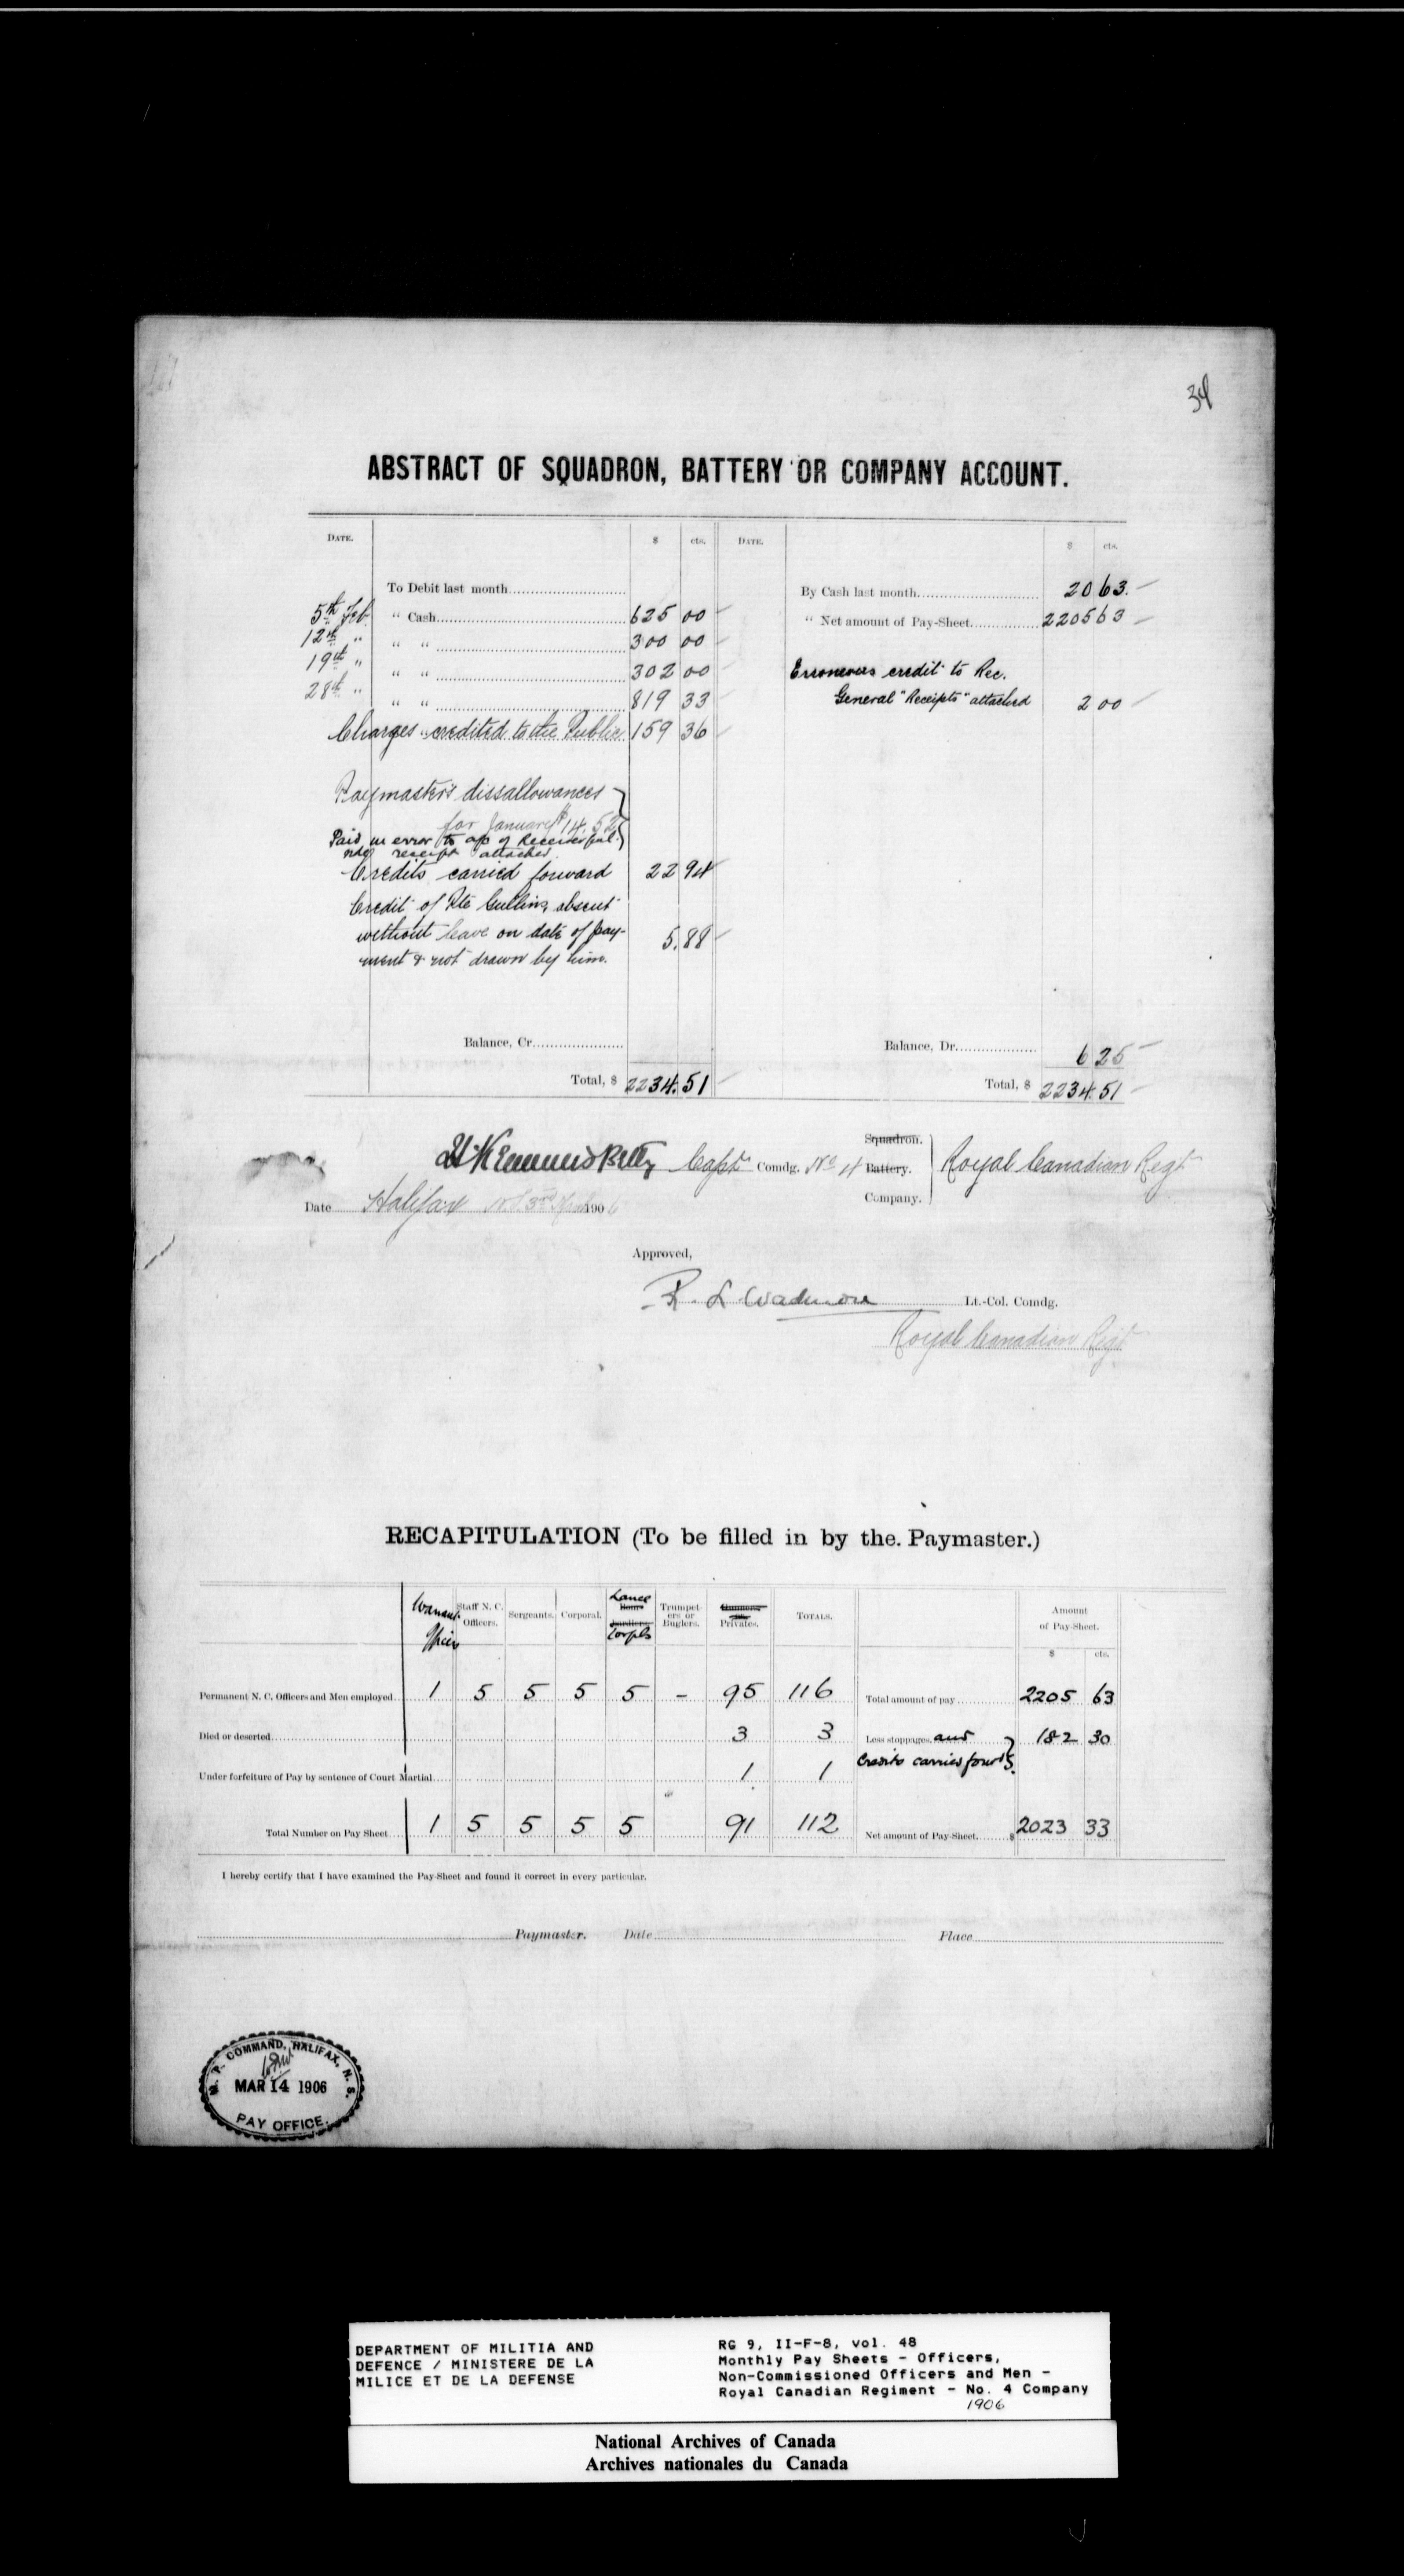 34
ABSTRACT OF SQUADRON, BATTERY OR COMPANY ACCOUNT.
DATE. $ cts. DATE. $ cts.
To Debit last month
5th Feb. " Cash 625 00
12th " " " 300 00
19th " " " 302 00
28th " " " 819 33
Charges credited to the Public 159 36
Paymaster's dissallowances
for January $14.52
Paid in error to a/c of Receiver Genl.
receipt attached
Credits carried forward 22 94
Credit of Pte Gullin, absent
without leave on date of pay-
ment & not drawn by him. 5.88
Balance, Cr.
Total, $ 2234.51
By Cash last month 20 63.
" Net amount of Pay-Sheet 2205 63
Erroneous credit to Rec.
General "Receipts" attached 2 00
Balance, Dr. 6 25
Total, $ 2234.51
Capt Comdg. No 4 Squadron. Battery. Company. Royal Canadian Regt
Date Halifax N.S. 3rd 1906
Approved,
R. L. Wadmore Lt.-Col. Comdg.
Royal Canadian Regt
RECAPITULATION (To be filled in by the Paymaster.)
Warrant Officer Staff N. C. Officers. Sergeants. Corporal. Lance Corpls Trumpeters or Buglers. Privates. TOTALS. Amount of Pay-Sheet.
$ cts.
Permanent N. C. Officers and Men employed 1 5 5 5 5 - 95 116 Total amount of pay 2205 63
Died or deserted 3 3 Less stoppages and 182 30
Under forfeiture of Pay by sentence of Court Martial 1 1 Credits carried forwd
Total Number on Pay Sheet 1 5 5 5 5 91 112 Net amount of Pay-Sheet $ 2023 33
I hereby certify that I have examined the Pay-Sheet and found it correct in every particular.
Paymaster. Date Place
M. P. COMMAND, HALIFAX, N. S.
MAR 14 1906
PAY OFFICE.
DEPARTMENT OF MILITIA AND
DEFENCE / MINISTERE DE LA
MILICE ET DE LA DEFENSE
RG 9, II-F-8, vol. 48
Monthly Pay Sheets - Officers,
Non-Commissioned Officers and Men -
Royal Canadian Regiment - No. 4 Company
1906
National Archives of Canada
Archives nationales du Canada